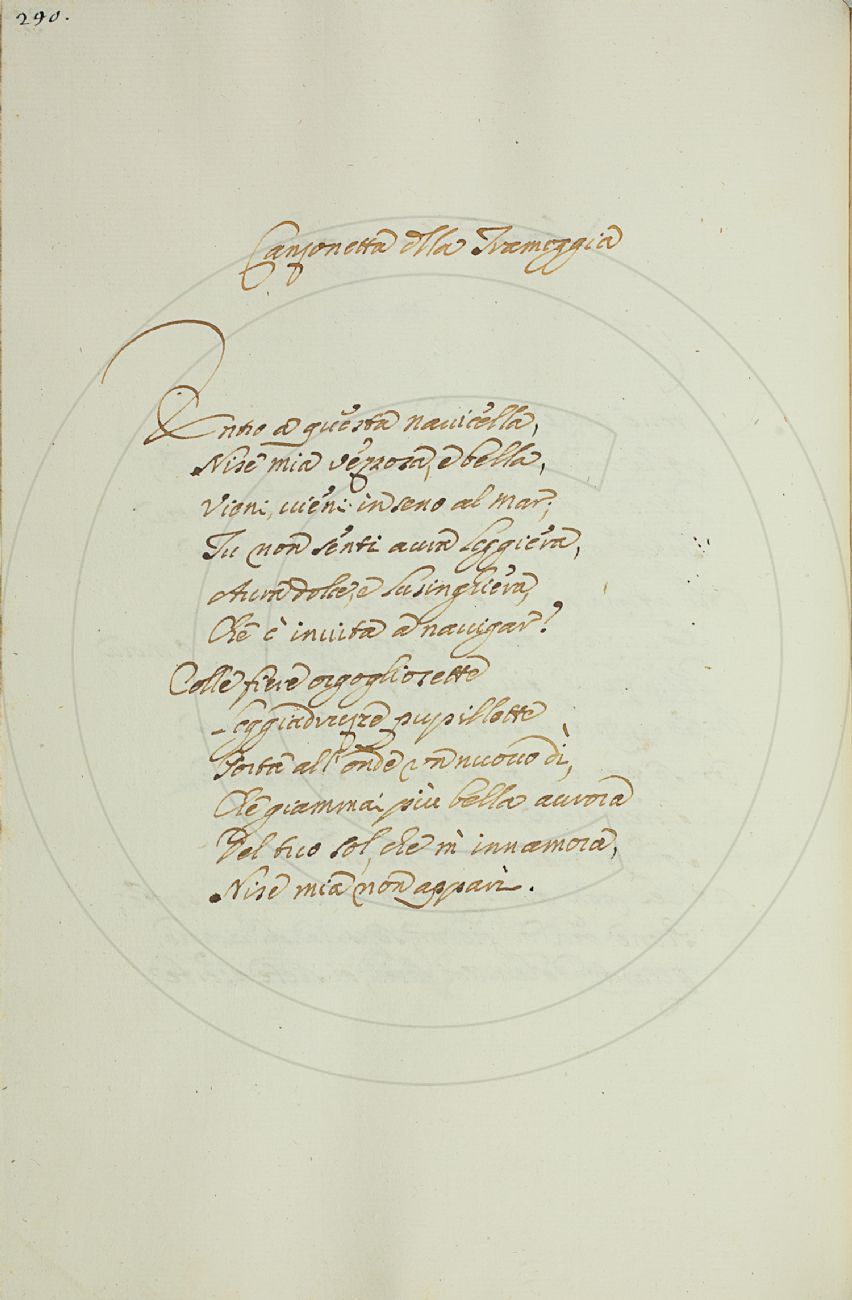 290.
Canzonetta della Trameggia
Entro a questa navicella,
Nise mia vezzosa, e bella,
Vieni, vieni in seno al Mar;
Tu non senti aura leggiera,
Aura dolce, e lusinghiera,
Che c'invita a navigar?
Colle fiere orgogliosette
Leggiadrezze pupillette
Porta all'onde un nuovo dì,
Che giammai più bella aurora
Del tuo sol, che m'innamora,
Nise mia non apparì.